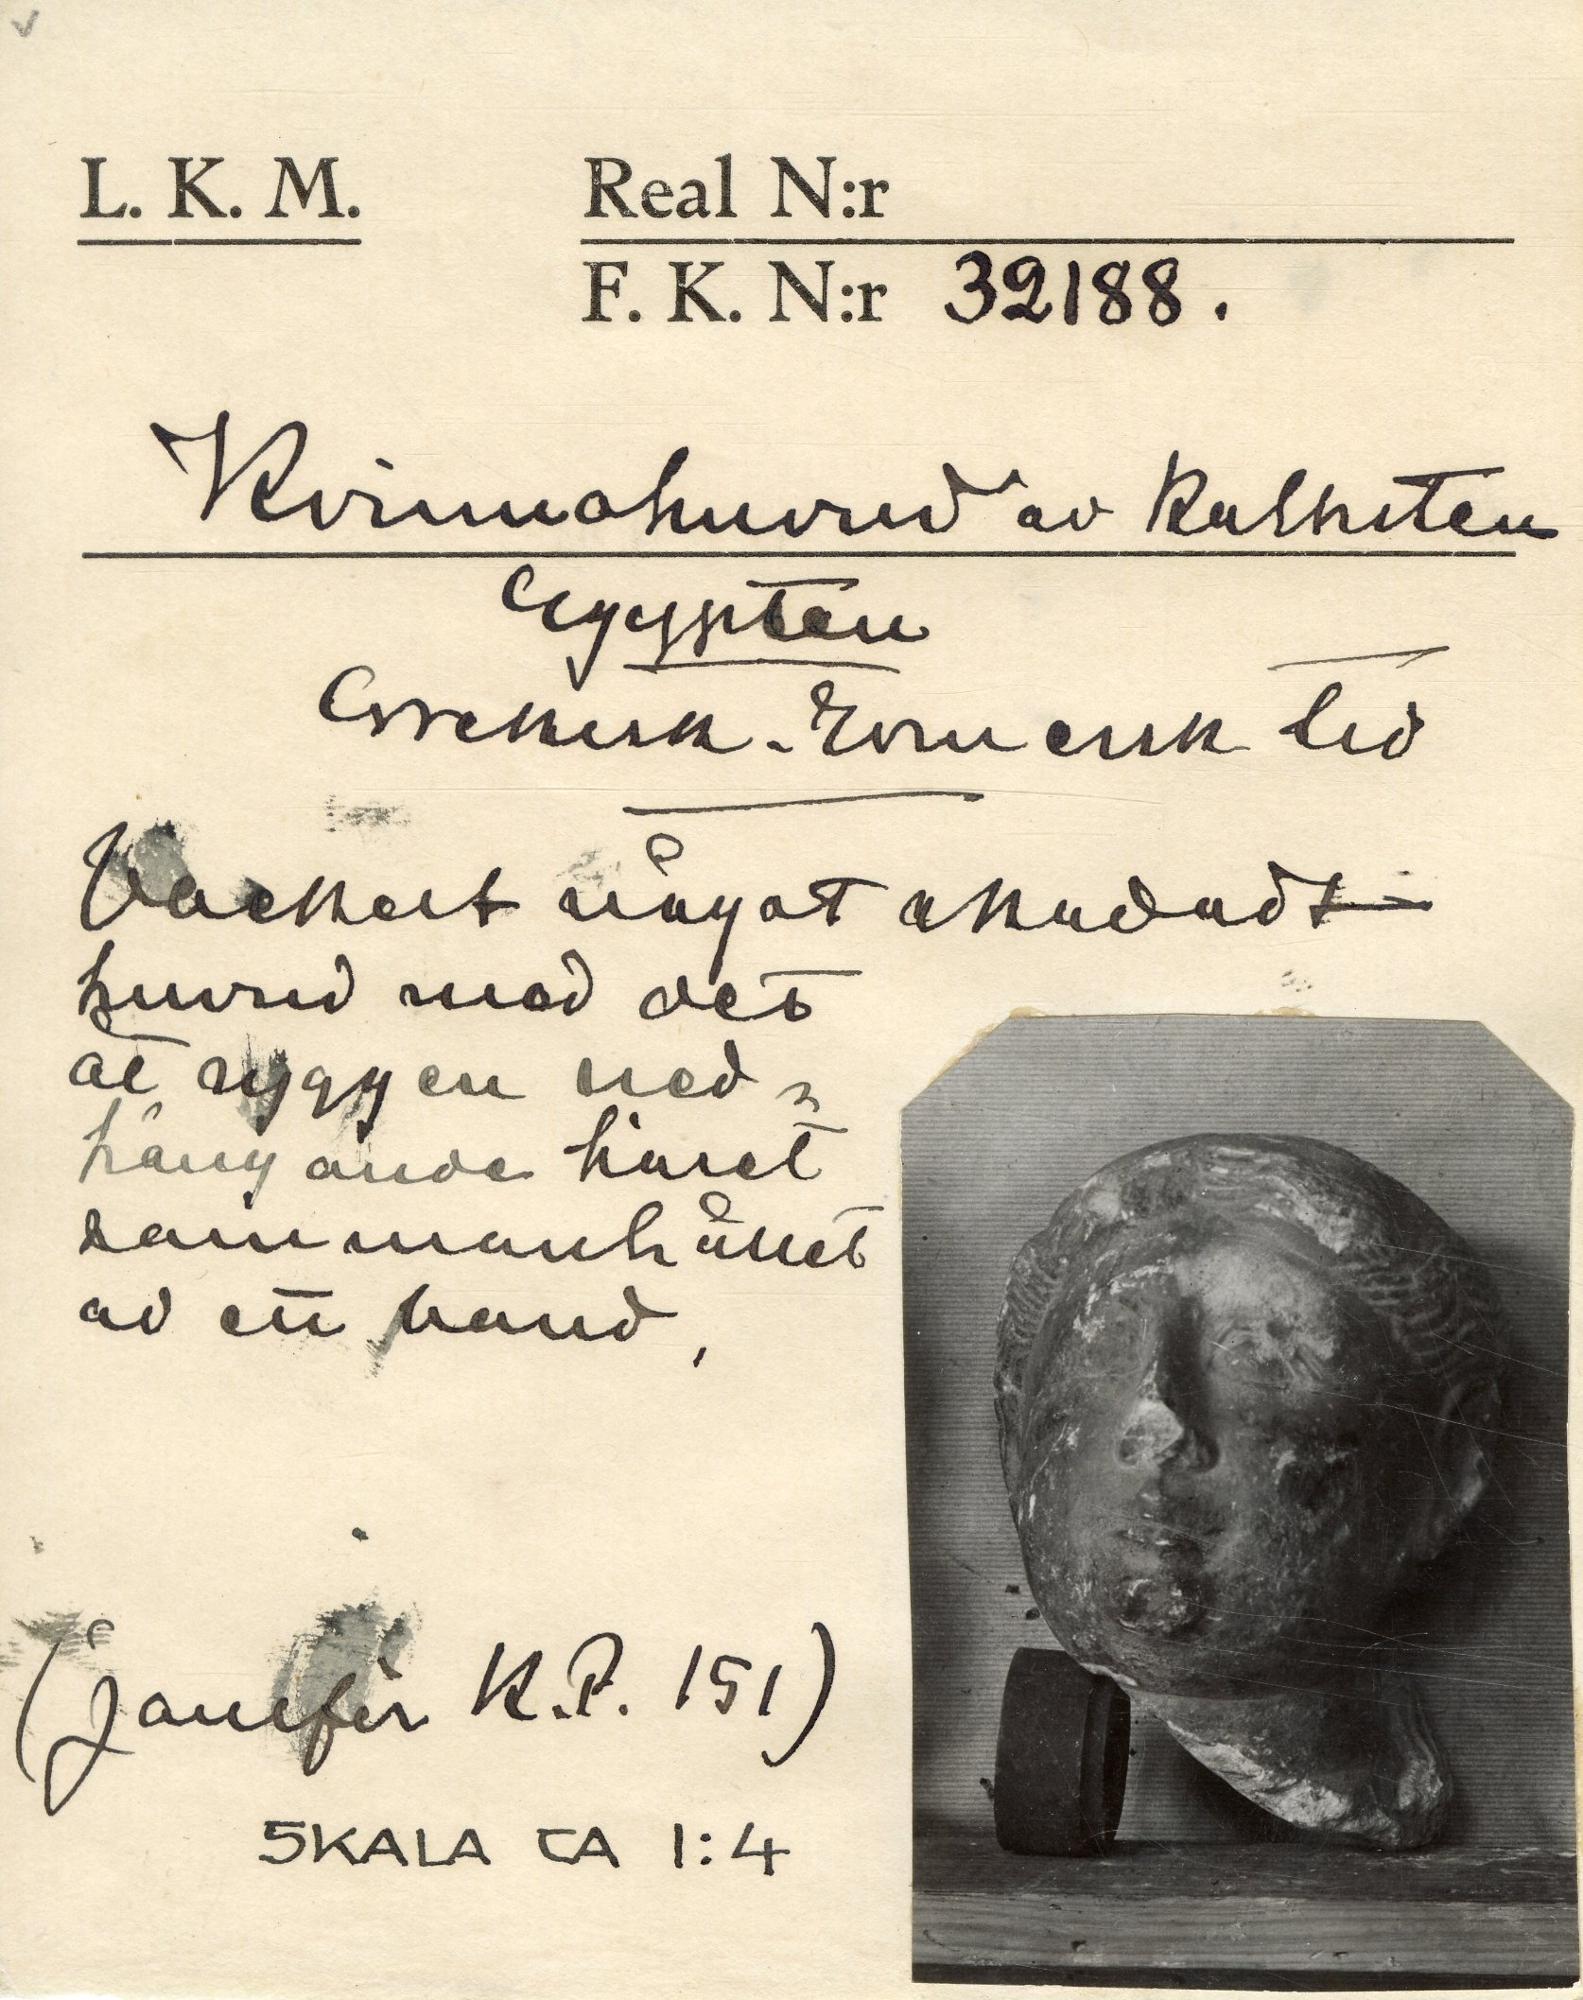 L. K. M.
Real N:r
F. K. N:r 32188.
Kvinnohuvud av kalksten
Egypten
Grekisk-Romersk tid
Vackert något skadadt
huvud med det
åt ryggen ned-
hängande håret
sammanhållet
av ett band,
(jämför K.P. 151)
SKALA CA 1:4